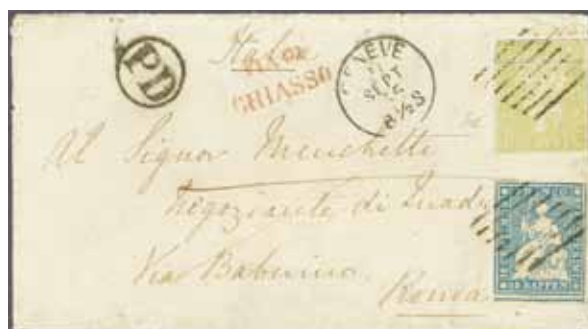 PD
Italie
CHIASSO
GENÈVE
SEPT
6½S
Al Signor Menchetti
negoziante di Quadri
Via Babuino
Roma
RAPPEN